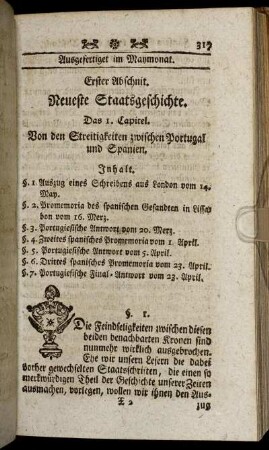 317
Ausgefertiget im Maymonat.
Erster Abschnit.
Neueste Staatsgeschichte.
Das 1. Capitel.
Von den Streitigkeiten zwischen Portugal
und Spanien.
Inhalt.
§. 1 Auszug eines Schreibens aus London vom 14.
May.
§. 2. Promemoria des spanischen Gesandten in Lissa
bon vom 16. Merz.
§. 3. Portugiesische Antwort vom 20. Merz.
§. 4 Zweites spanisches Promemoria vom 1. April.
§. 5. Portugiesische Antwort vom 5. April.
§. 6. Drittes spanisches Promemoria vom 23. April.
§. 7. Portugiesische Final-Antwort vom 23. April.
§. 1.
Die Feindseligkeiten zwischen diesen
beiden benachbarten Kronen sind
nunmehr wirklich ausgebrochen.
Ehe wir unsern Lesern die dabei
vorher gewechselten Staatsschriften, die einen so
merkwürdigen Theil der Geschichte unserer Zeiten
ausmachen, vorlegen, wollen wir ihnen den Aus-
zug